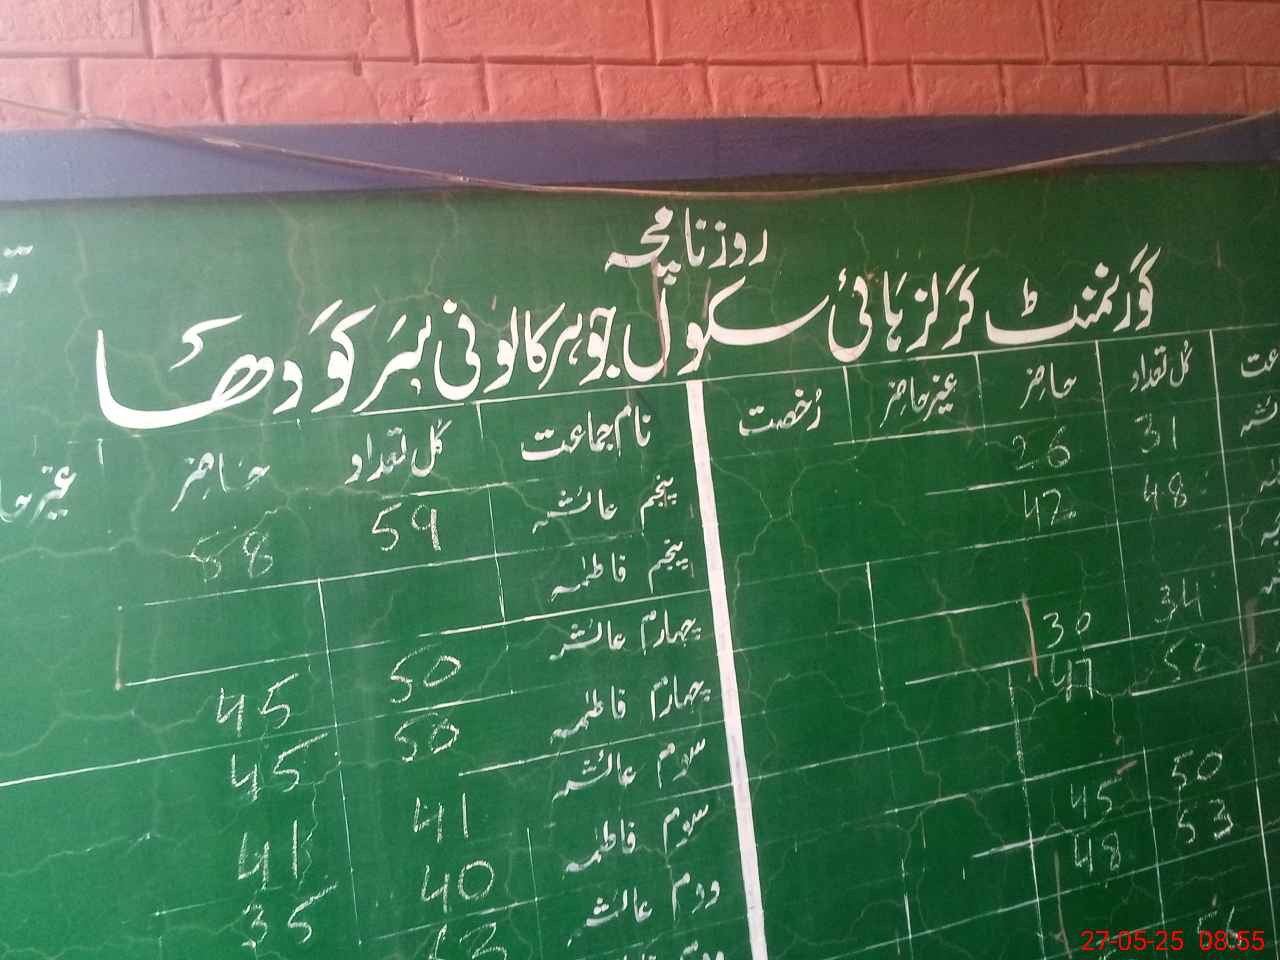 روزنامچہ
گورنمنٹ گرلز ہائی سکول جوہر کالونی سرگودھا
کل تعداد حاضر غیر حاضر رخصت
31 26
48 42
34 30
52 47
50 45
53 48
نام جماعت کل تعداد حاضر
پنجم عائشہ 59 58
پنجم فاطمہ
چہارم عائشہ 50 45
چہارم فاطمہ 50 45
سوم عائشہ 41 41
سوم فاطمہ 40 35
دوم عائشہ
27-05-25 08:55